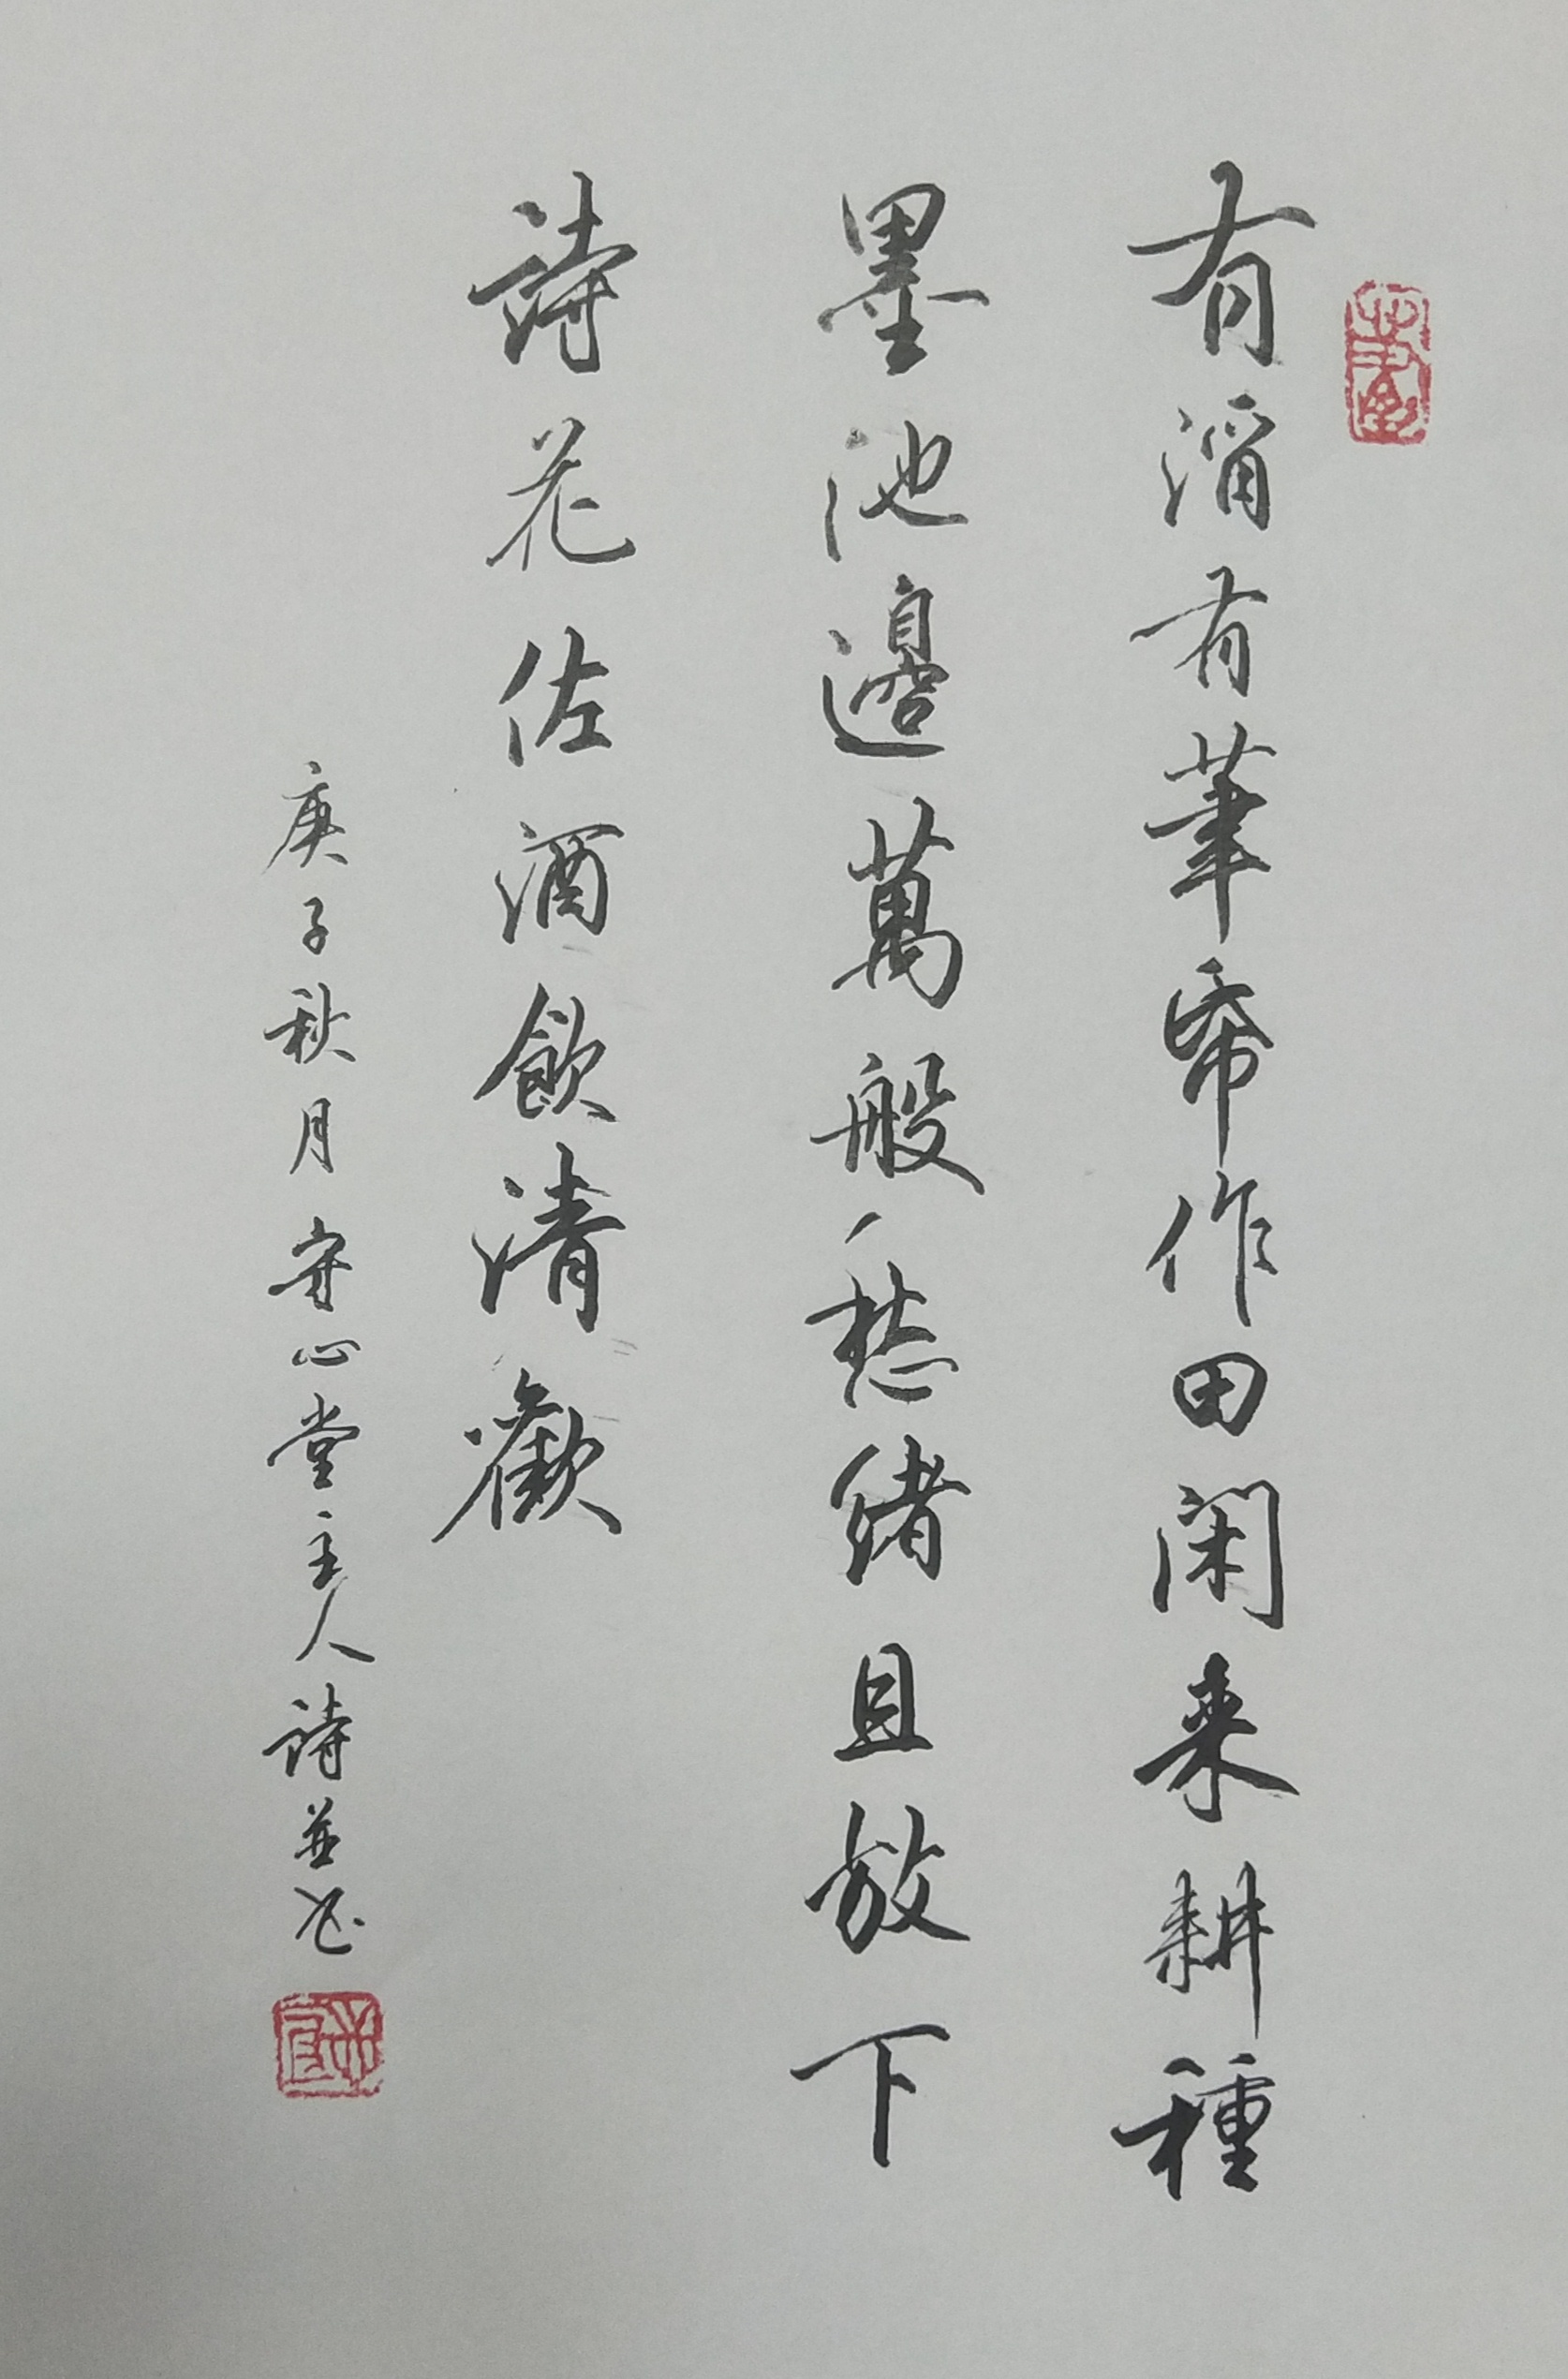 有酒有笔帋作田闲来耕種
墨池邊萬般愁緒且放下
詩花佐酒飲清歡
庚子秋月守心堂主人詩並书